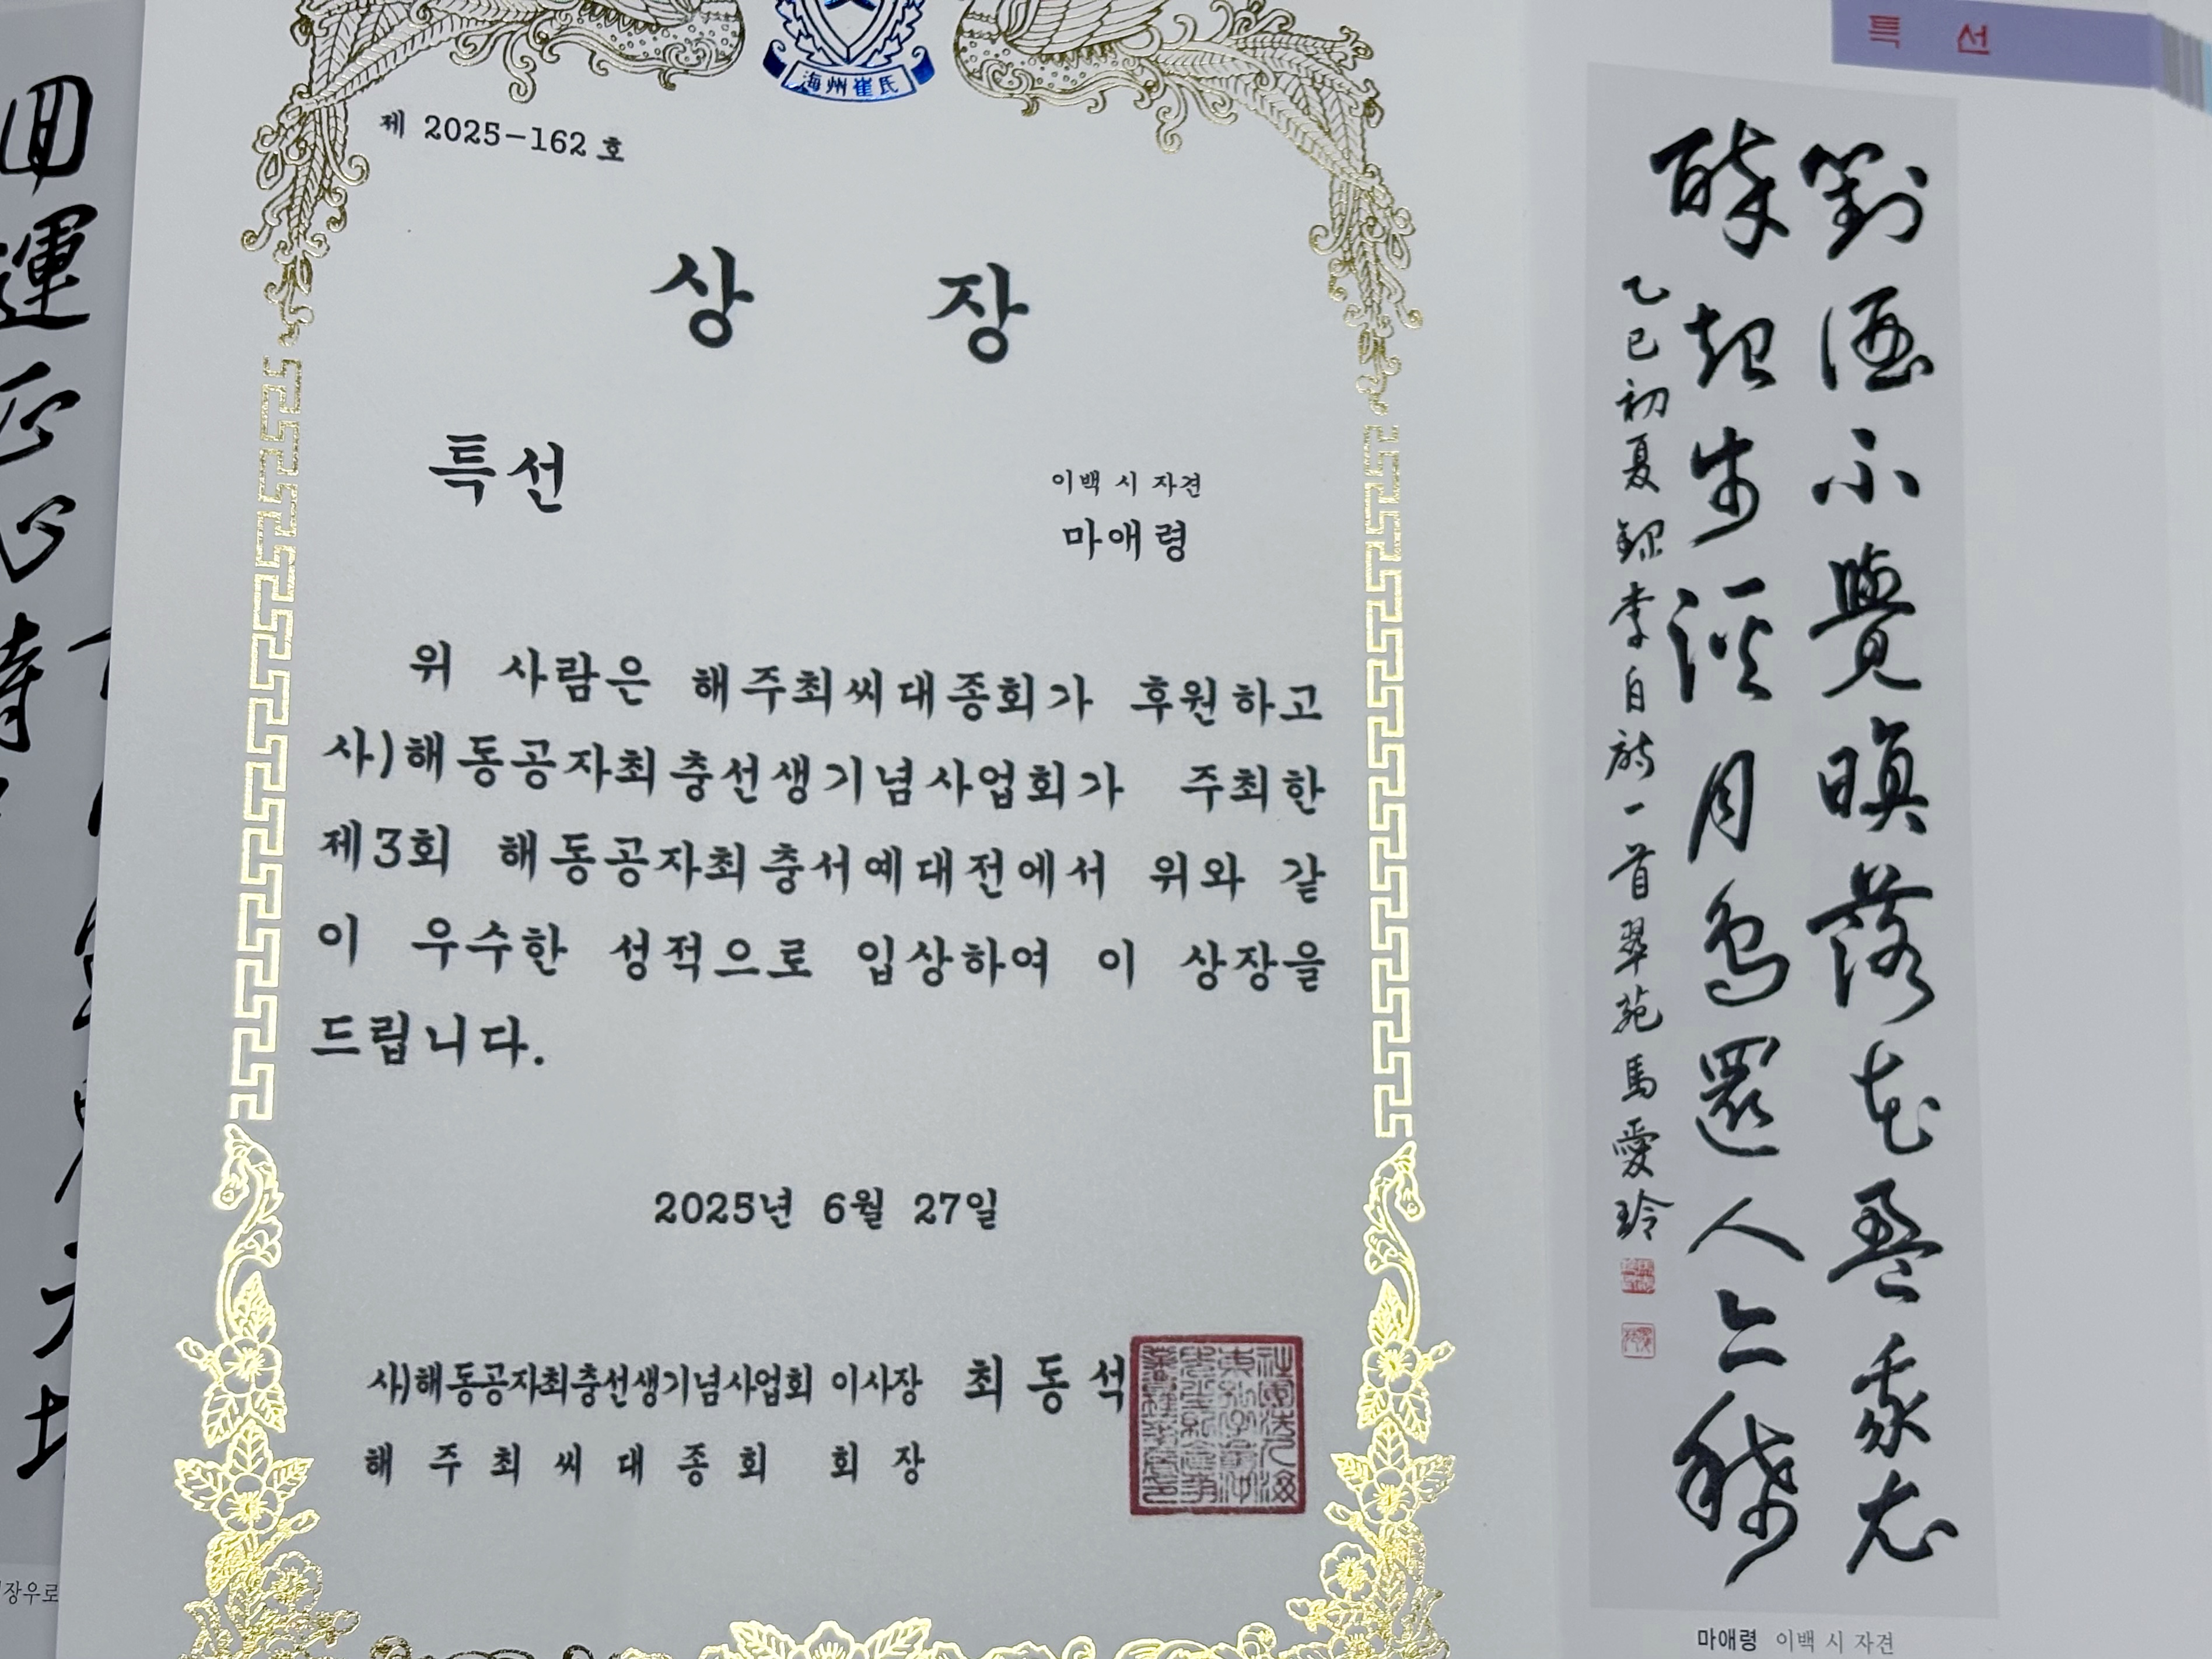 海州崔氏
제 2025-162 호
상 장
특선
이백 시 자견
마애령
위 사람은 해주최씨대종회가 후원하고
사)해동공자최충선생기념사업회가 주최한
제3회 해동공자최충서예대전에서 위와 같
이 우수한 성적으로 입상하여 이 상장을
드립니다.
2025년 6월 27일
사)해동공자최충선생기념사업회 이사장 최 동 석
해 주 최 씨 대 종 회 회 장
특 선
對酒不覺暝落花盈我衣
醉起步溪月鳥還人亦稀
乙巳初夏錄李白詩一首翠苑馬愛玲
마애령 이백 시 자견
回運
장우로